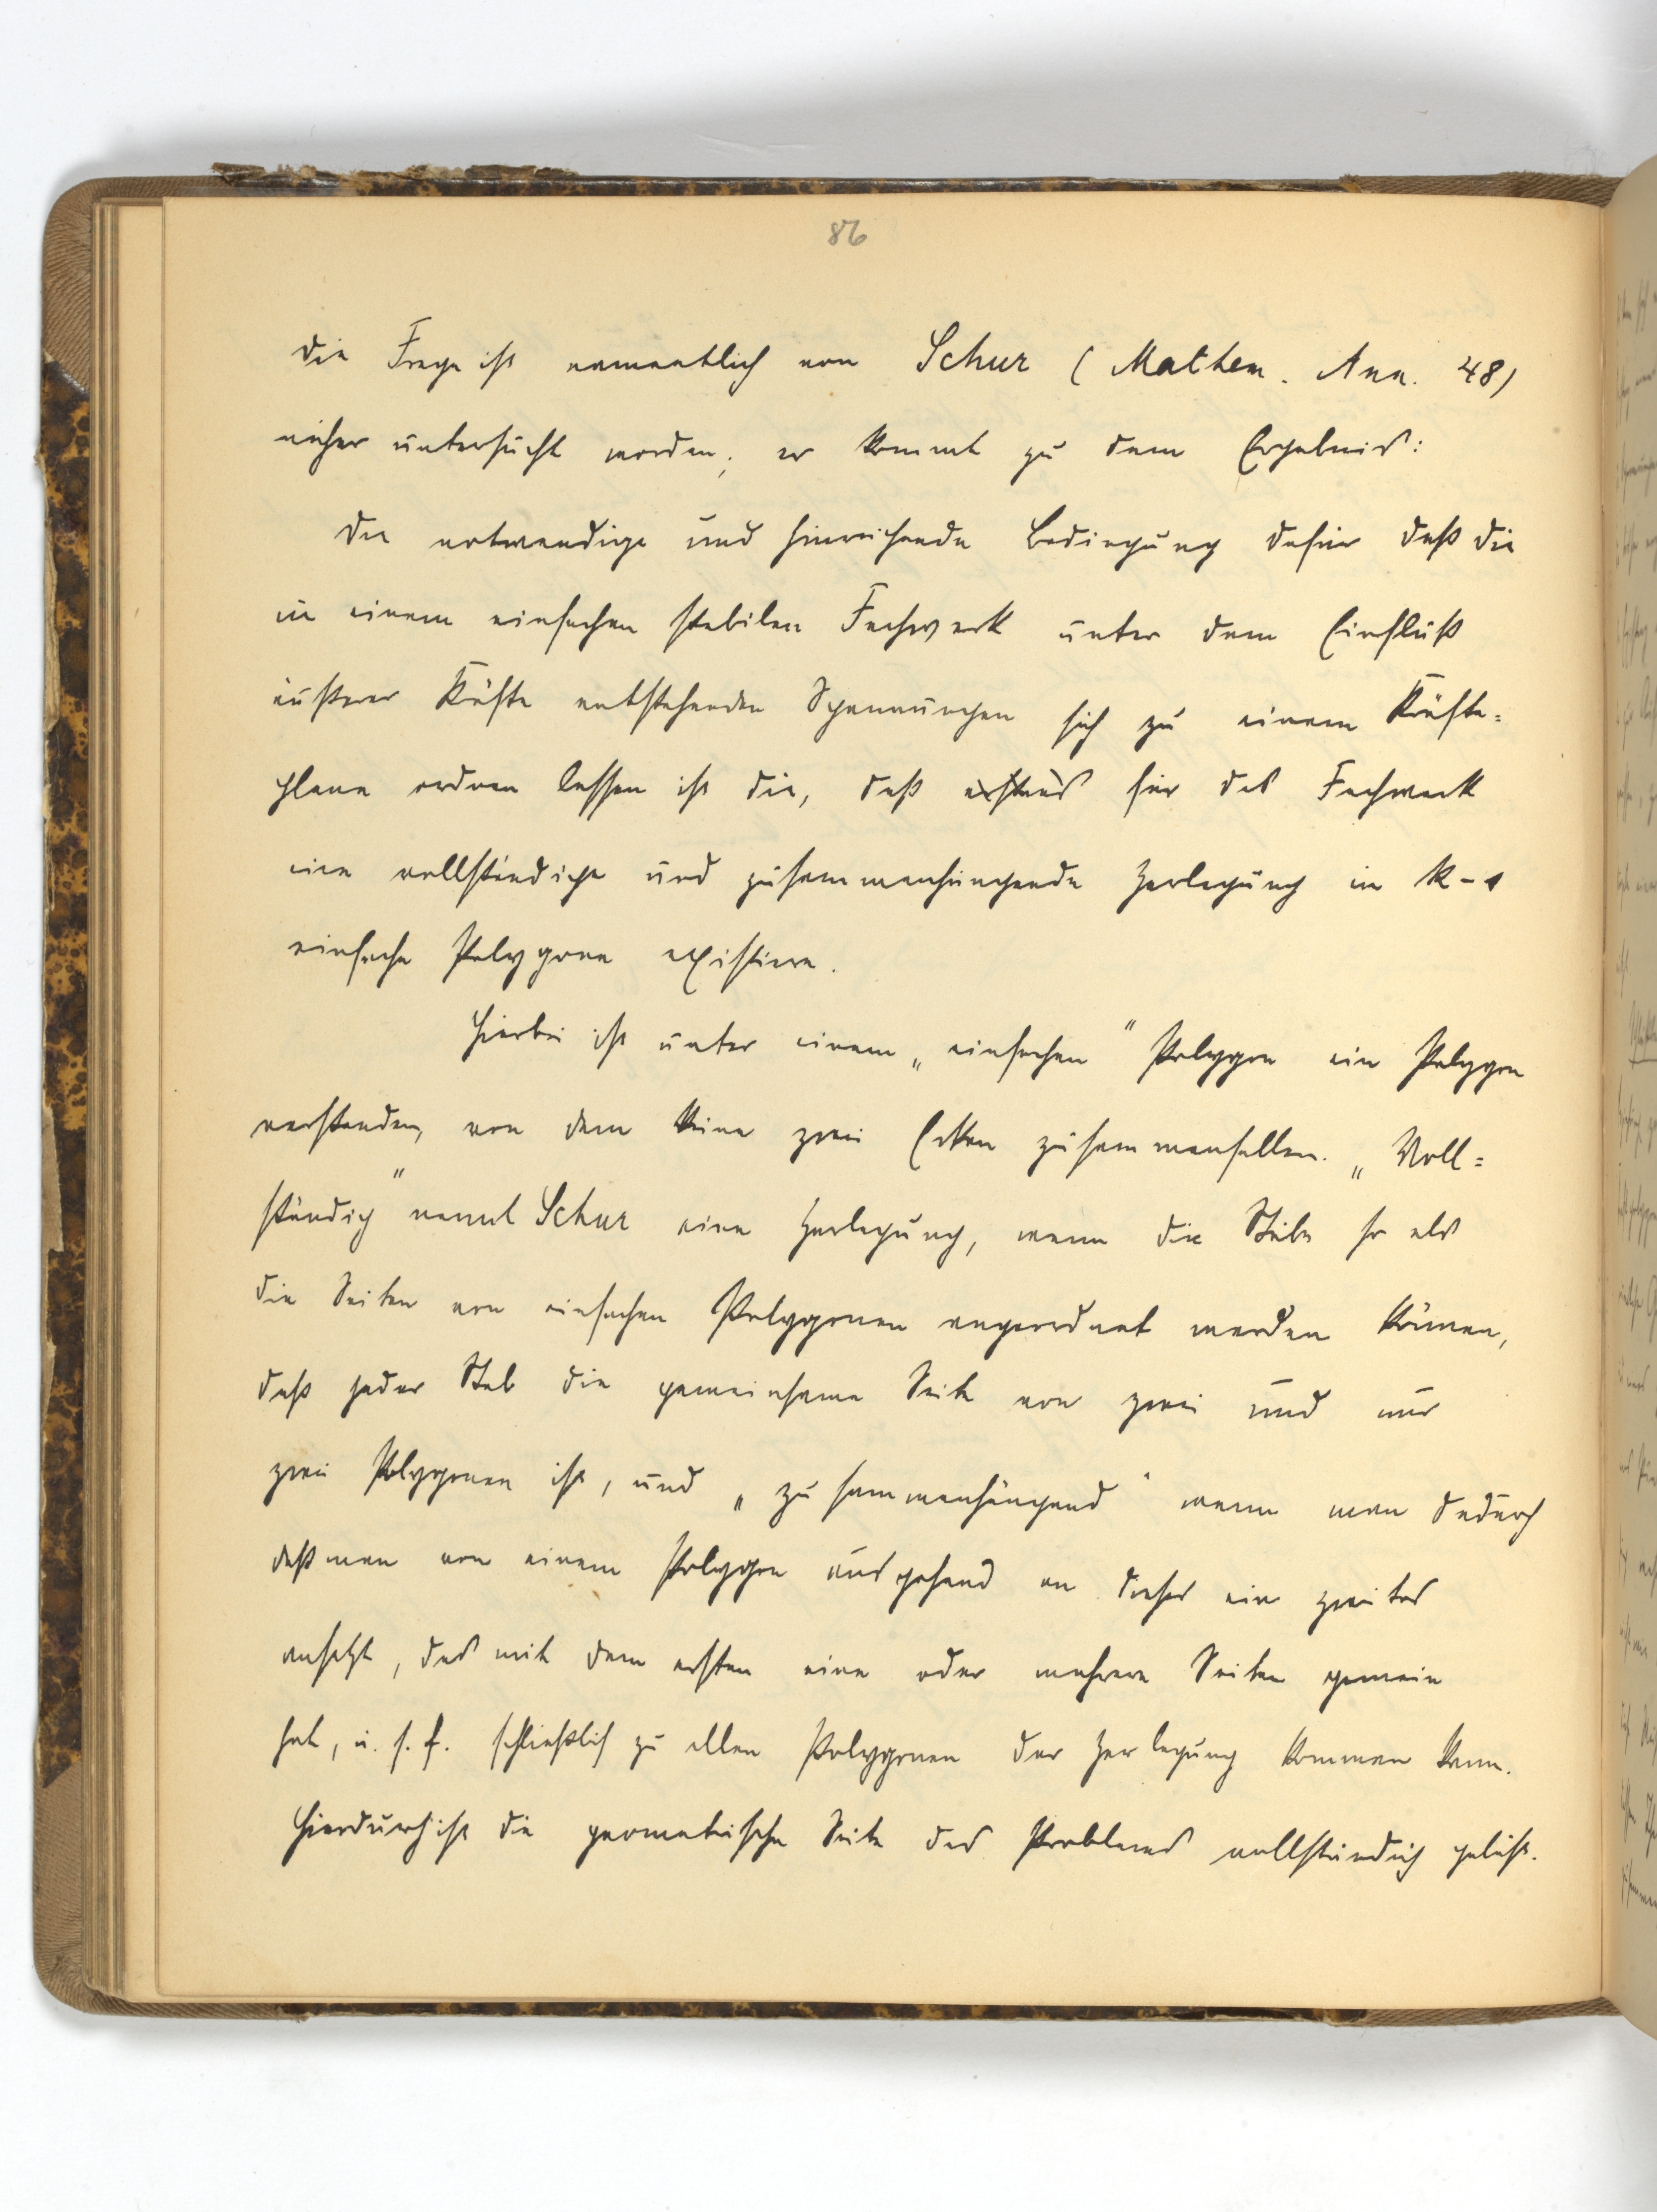 86
Die Frage ist namentlich von Schur (Mathem. Ann. 48)
näher untersucht worden; er kommt zu dem Ergebnis:
Die notwendige und hinreichende Bedingung dafür daß die
in einem einfachen stabilen Fachwerk unter dem Einfluß
äußerer Kräfte entstehenden Spannungen sich zu einem Kräfte=
plane ordnen lassen ist die, daß für das Fachwerk
eine vollständige und zusammenhängende Zerlegung in K-1
einfache Polygone existiere.
Hierbei ist unter einem „einfachen" Polygon ein Polygon
verstanden, von dem keine zwei Ecken zusammenfallen. „Voll=
ständig" nennt Schur eine Zerlegung, wenn die Stäbe so als
die Seiten von einfachen Polygonen angeordnet werden können,
daß jeder Stab die gemeinsame Seite von zwei und nur
zwei Polygonen ist, und „zusammenhängend" wenn man dadurch
daß man von einem Polygon ausgehend an dieses ein zweites
ansetzt, das mit dem ersten eine oder mehrere Seiten gemein
hat, u. s. f. schließlich zu allen Polygonen der Zerlegung kommen kann.
Hierdurch ist die geometrische Seite des Problems vollständig gelöst.